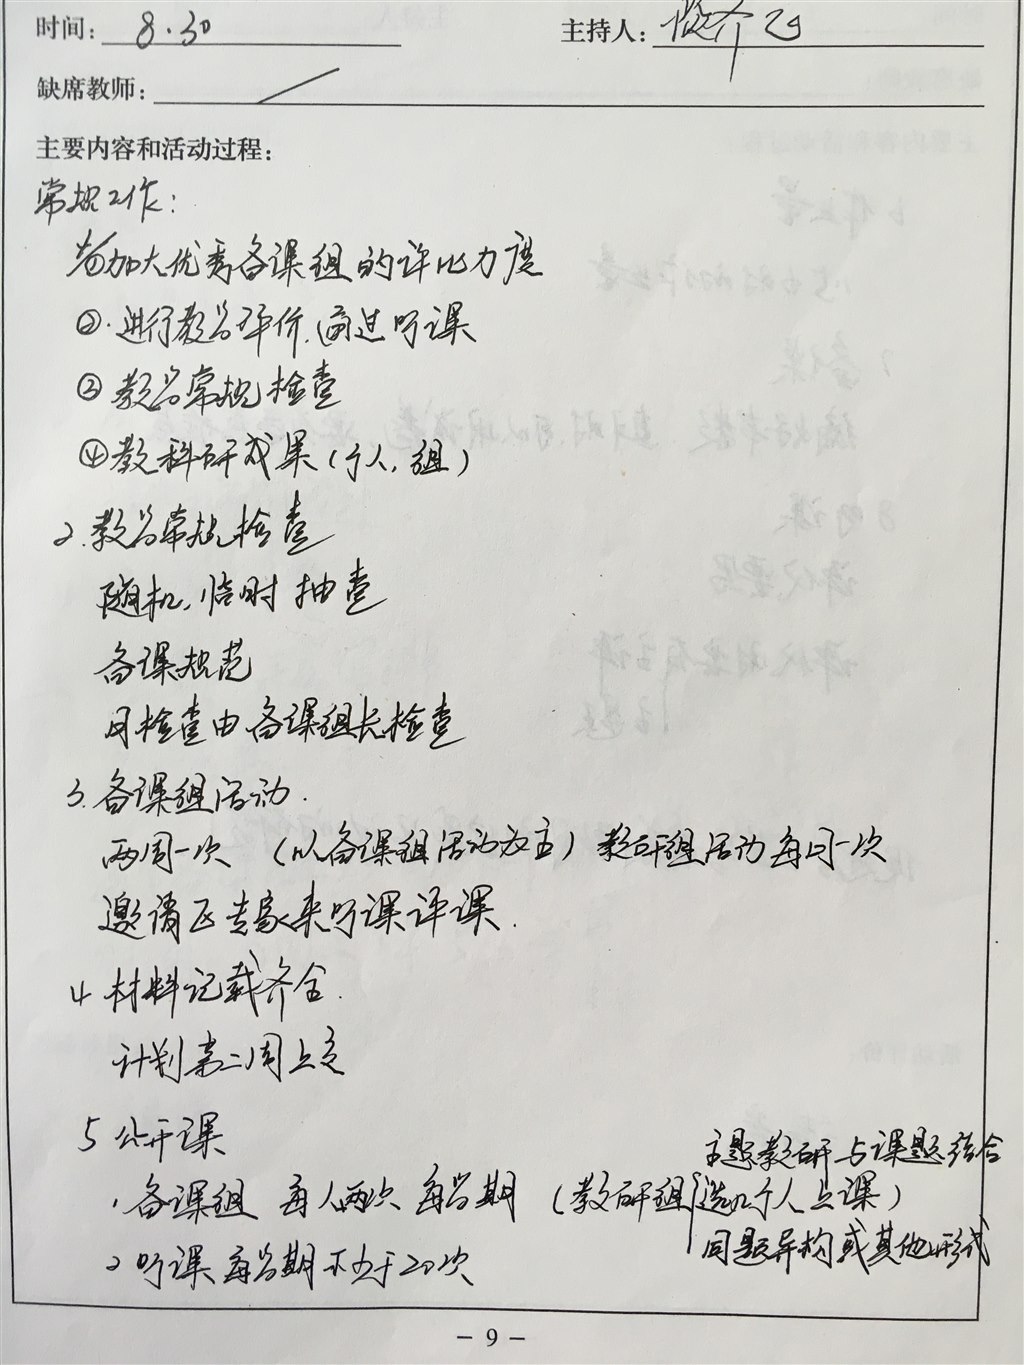 时间：8.30
主持人：
缺席教师：
主要内容和活动过程：
常规工作：
加大优秀备课组的评比力度
②.进行教学评价.通过听课
③教学常规检查
④教科研成果(个人,组)
2.教学常规检查
随机,临时抽查
备课规范
月检查由备课组长检查
3.备课组活动.
两周一次 (以备课组活动为主)教研组活动每月一次
邀请区专家来听课评课.
4材料记载齐全.
计划第二周上交
5公开课
主题教研与课题结合
1.备课组 每人两次 每学期 (教研组选几个人上课)
同题异构或其他形式
2听课每学期不少于20次
- 9 -